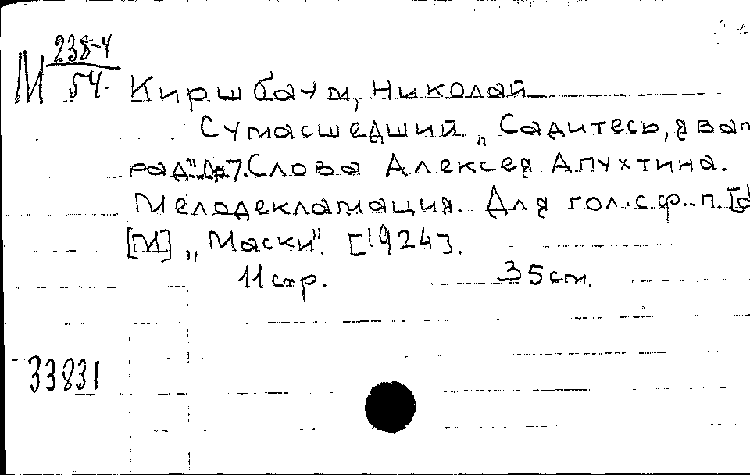 М 238-4
54.
Киршбаум, Николай
Сумасшедший „Садитесь, я вам
рад". Слова Алексея Апухтина.
Мелодекламация. Для гол. с ф.-п.
[М] „Маски". [1924].
11 стр. 35 cm.
33831